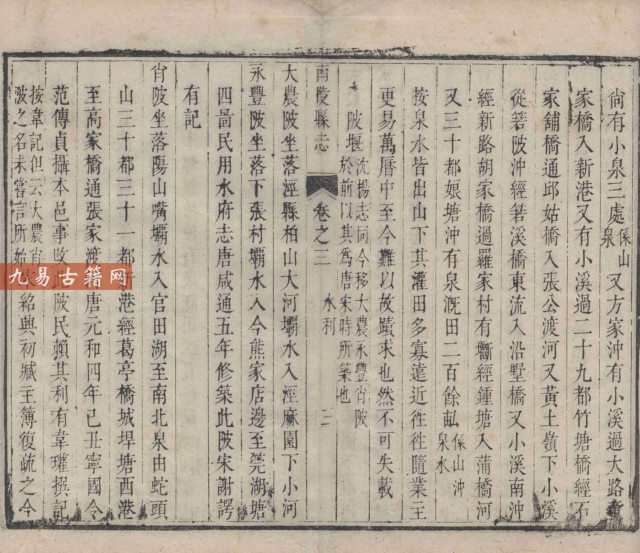 尙有小泉三處係山泉又方家沖有小溪過大路
家橋入新港又有小溪過二十九都竹塘橋經石
家舖橋通邱姑橋入張公渡河又黃土嶺下小溪
從箬陂沖經箬溪橋東流入沿墅橋又小溪南沖
經新路胡家橋過羅家村有斷經鍾塘入蒲橋河
又三十都娘塘沖有泉漑田二百餘畝係山沖泉水
按泉水皆出山下其灌田多寡遠近徃徃隨業主
更易萬曆中至今難以故蹟求也然不可失載
陂堰沈楊志同今移大農永豐官陂於前以其爲唐宋時所築也
南陵縣志 卷之三 水利 二
大農陂坐落涇縣柏山大河壩水入涇麻園下小河
永豐陂坐落下張村壩水入今熊家店邊至筦湖塘
四啚民用水府志唐咸通五年修築此陂宋謝諤
有記
官陂坐落陽山嘴壩水入官田湖至南北泉由蛇頭
山三十都三十一都新港經葛亭橋城垾塘西港
至高家橋通張家渡唐元和四年己丑寧國令
范傳貞攝本邑事改陂民賴其利有韋瓘撰記
按韋記但云大農
波之名未嘗言所始紹興初臧主簿復疏之今
九易古籍网